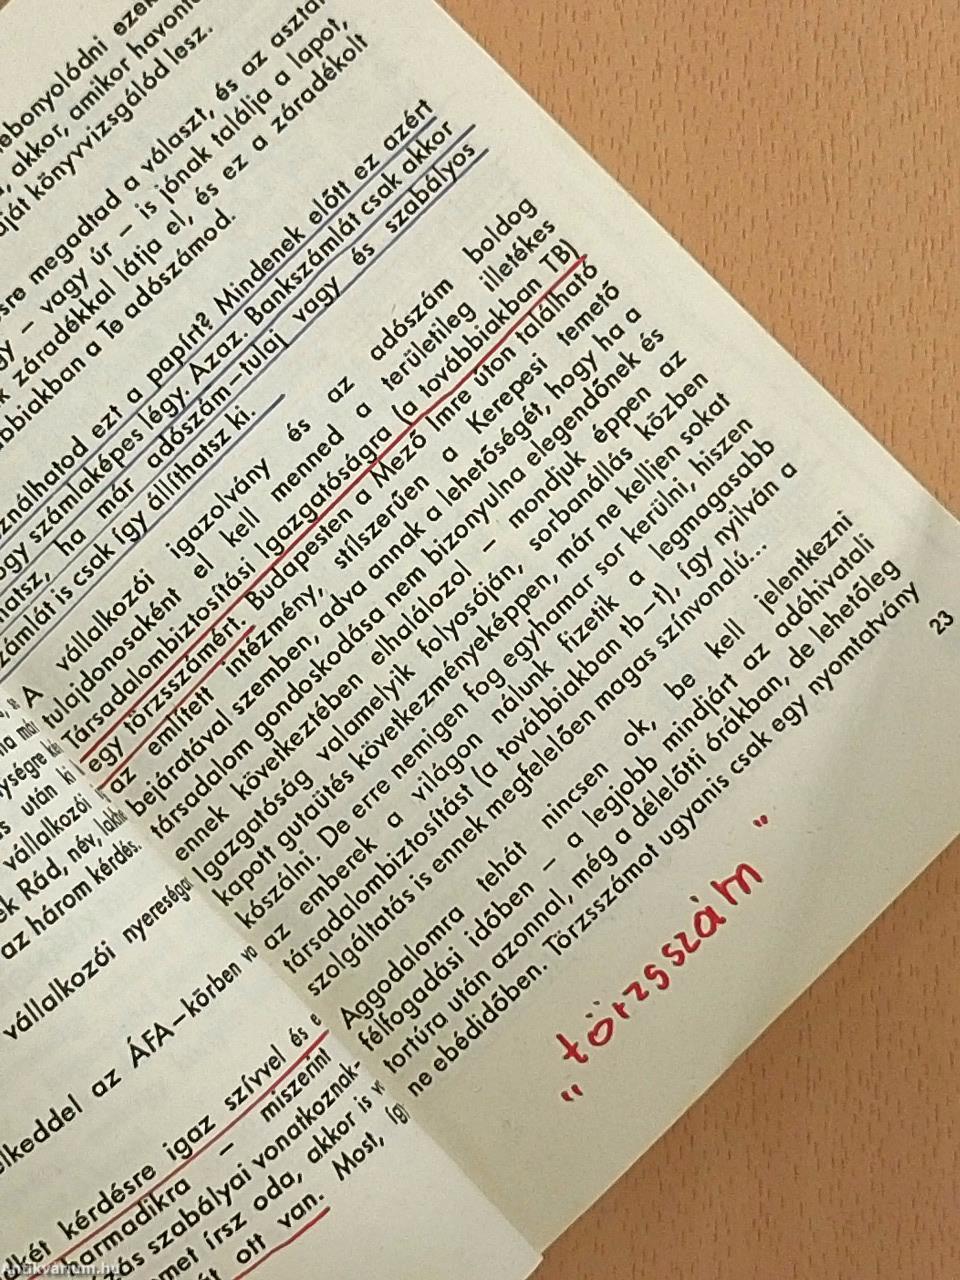 ebonyolódni
akkor, amikor
ját könyvvizsgálód lesz.
re megadtad a választ, és az
– vagy úr – is jónak találja a lapot,
záradékkal látja el, és ez a záradékolt
biakban a Te adószámod.
ezt a papírt? Mindenek előtt ez azért
számlaképes légy. Azaz. Bankszámlát csak akkor
ha már adószám–tulaj vagy és szabályos
számlát is csak így állíthatsz ki.
A vállalkozói igazolvány és az adószám boldog
tulajdonosaként el kell menned a területileg illetékes
Társadalombiztosítási Igazgatóságra (a továbbiakban TB)
egy törzsszámért. Budapesten a Mező Imre úton található
az említett intézmény, stílszerűen a Kerepesi temető
bejáratával szemben, adva annak a lehetőségét, hogy ha a
társadalom gondoskodása nem bizonyulna elegendőnek és
ennek következtében elhalálozol – mondjuk éppen az
Igazgatóság valamelyik folyosóján, sorbanállás közben
kapott gutaütés következményeképpen, már ne kelljen sokat
kószálni. De erre nemigen fog egyhamar sor kerülni, hiszen
az emberek a világon nálunk fizetik a legmagasabb
társadalombiztosítást (a továbbiakban tb–t), így nyilván a
szolgáltatás is ennek megfelelően magas színvonalú...
Aggodalomra tehát nincsen ok, be kell jelentkezni
félfogadási időben – a legjobb mindjárt az adóhivatali
tortúra után azonnal, még a délelőtti órákban, de lehetőleg
ne ebédidőben. Törzsszámot ugyanis csak egy nyomtatvány
23
"törzsszám"
ységre
után ki
vállalkozói
Rád, név,
az három kérdés.
vállalkozói
az ÁFA–körben
kérdésre igaz szívvel és
harmadikra – miszerint
szabályai vonatkoznak-
írsz oda, akkor is
ott van. Most, így
Antikvarium.hu